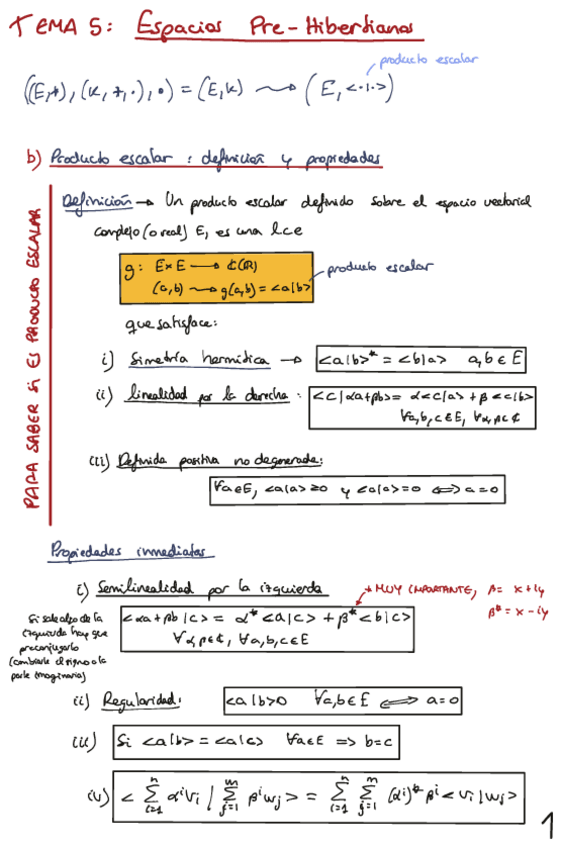 TEMA 5: Espacios Pre-Hilbertianos
producto escalar
((E,+), (K,+,·), ∘) = (E,K) ⟿ (E, <·|·>)
b) Producto escalar : definición y propiedades
PARA SABER SI ES PRODUCTO ESCALAR
Definición → Un producto escalar definido sobre el espacio vectorial
complejo (o real) E, es una lce
g: E×E → ℂ(ℝ)
(a,b) ⟿ g(a,b) = <a|b>
producto escalar
que satisface:
i) Simetría hermítica → <a|b>* = <b|a> a,b ∈ E
ii) linealidad por la derecha : <c|αa+βb> = α<c|a> + β<c|b>
∀a,b,c∈E, ∀α,β∈ℂ
iii) Definida positiva no degenerada:
∀a∈E, <a|a> ≥0 y <a|a>=0 ⟺ a=0
Propiedades inmediatas
i) Semilinealidad por la izquierda
MUY IMPORTANTE, β = x+iy
β* = x-iy
Si sale algo de la
izquierda hay que
preconjugarlo
(cambiarle el signo a la
parte imaginaria)
<αa+βb|c> = α*<a|c> + β*<b|c>
∀α,β∈ℂ, ∀a,b,c∈E
ii) Regularidad: <a|b>0 ∀a,b∈E ⟺ a=0
iii) Si <a|b> = <a|c> ∀a∈E ⇒ b=c
iv) < ∑ⁿᵢ₌₁ αⁱvᵢ | ∑ᵐⱼ₌₁ βⁱwⱼ > = ∑ⁿᵢ₌₁ ∑ᵐⱼ₌₁ (αⁱ)* βⁱ <vᵢ|wⱼ>
1